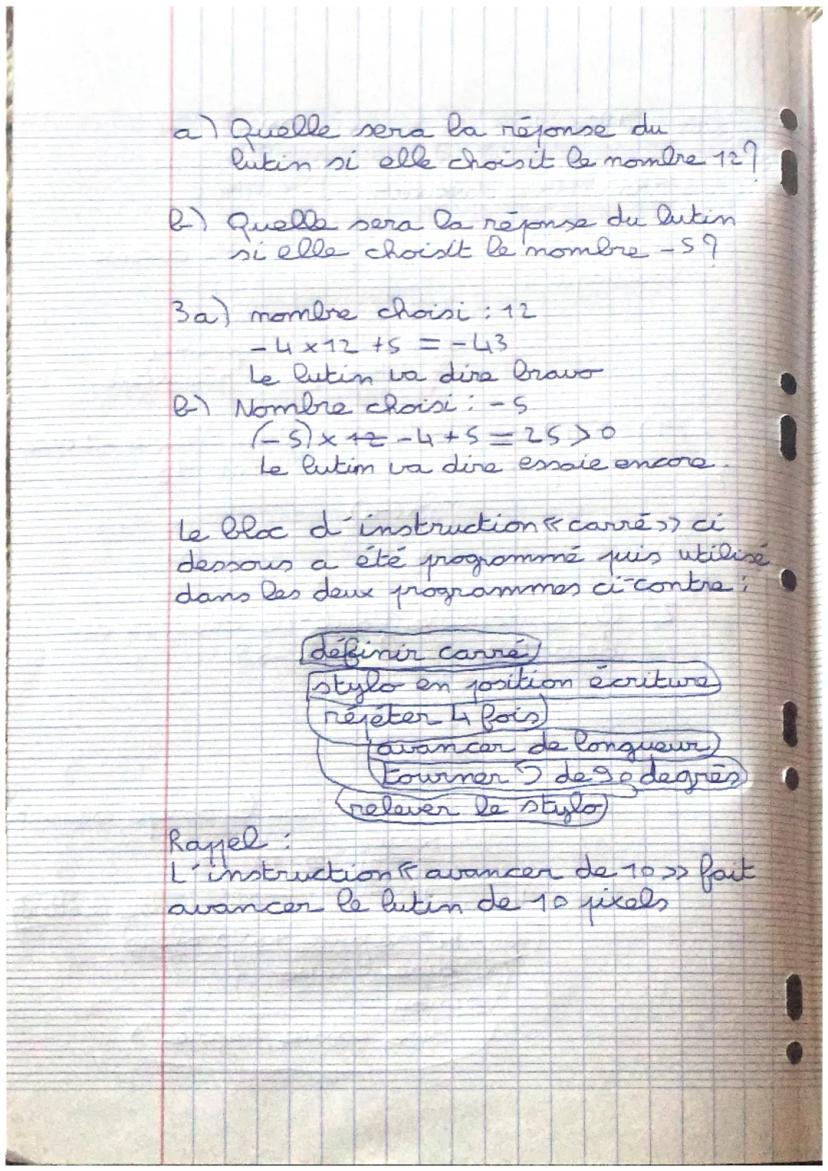 a) Quelle sera la réponse du
lutin si elle choisit le nombre 12?
b) Quelle sera la réponse du lutin
si elle choisit le nombre -5?
3a) nombre choisi : 12
-4 x 12 + 5 = -43
Le lutin va dire bravo
b) Nombre choisi : -5
(-5) x 12 -4 + 5 = 25 > 0
Le lutin va dire essaie encore.
Le bloc d'instruction « carré » ci
dessous a été programmé puis utilisé
dans les deux programmes ci-contre :
définir carré
stylo en position écriture
répéter 4 fois
avancer de longueur
tourner ↺ de 90 degrés
relever le stylo
Rappel :
L'instruction « avancer de 10 » fait
avancer le lutin de 10 pixels